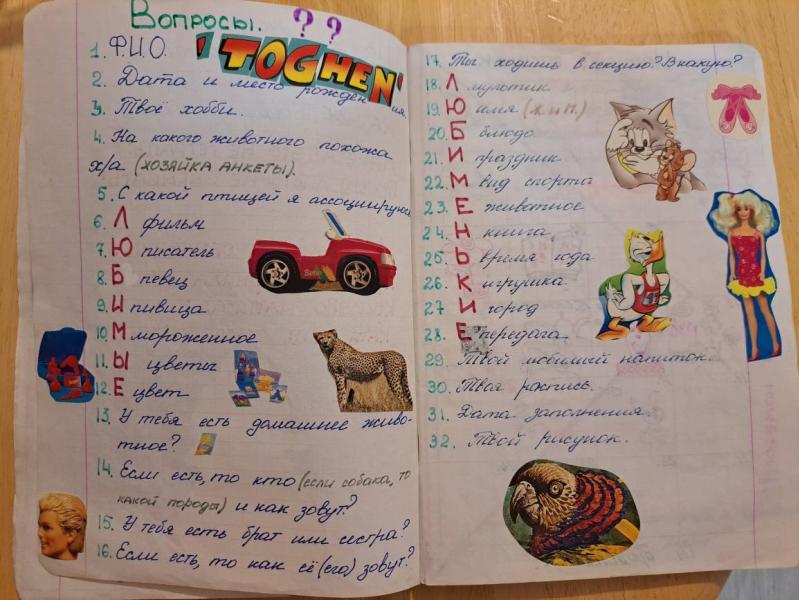 Вопросы. ? ?
'TOGHEN'
1. Ф.И.О.
2. Дата и место рождения.
3. Твоё хобби.
4. На какого животного похожа
х/а (ХОЗЯЙКА АНКЕТЫ).
5. С какой птицей я ассоциируюсь
6. Л фильм
7. Ю писатель
8. Б певец
9. И пивица
10. М мороженное
11. Ы цветы
12. Е цвет
13. У тебя есть домашнее живо-
тное?
14. Если есть, то кто (если собака, то
какой породы) и как зовут?
15. У тебя есть брат или сестра?
16. Если есть, то как её (его) зовут?
17. Ты ходишь в секцию? В какую?
18. Л мультик
19. Ю имя (Ж и М.)
20. Б блюдо
21. И праздник
22. М вид спорта
23. Е животное
24. Н книга
25. Ь время года
26. К игрушка
27 И город
28. Е передача
29. Твой любимый напиток.
30. Твоя роспись.
31. Дата заполнения
32. Твой рисунок.